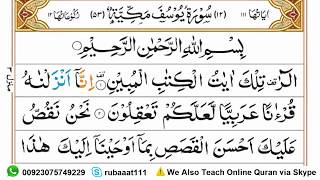 اٰیَاتُهَا ۱۱۱ (۱۲) سُوْرَةُ یُوْسُفَ مَكِّیَّةٌ (۵۳) رُكُوْعَاتُهَا ۱۲
بِسْمِ اللّٰهِ الرَّحْمٰنِ الرَّحِیْمِ
الٓرٰ تِلْكَ اٰیٰتُ الْكِتٰبِ الْمُبِیْنِ اِنَّاۤ اَنْزَلْنٰهُ
قُرْءٰنًا عَرَبِیًّا لَّعَلَّكُمْ تَعْقِلُوْنَ نَحْنُ نَقُصُّ
عَلَیْكَ اَحْسَنَ الْقَصَصِ بِمَاۤ اَوْحَیْنَاۤ اِلَیْكَ هٰذَا
منزل ۳
00923075749229 rubaaat111 We Also Teach Online Quran via Skype